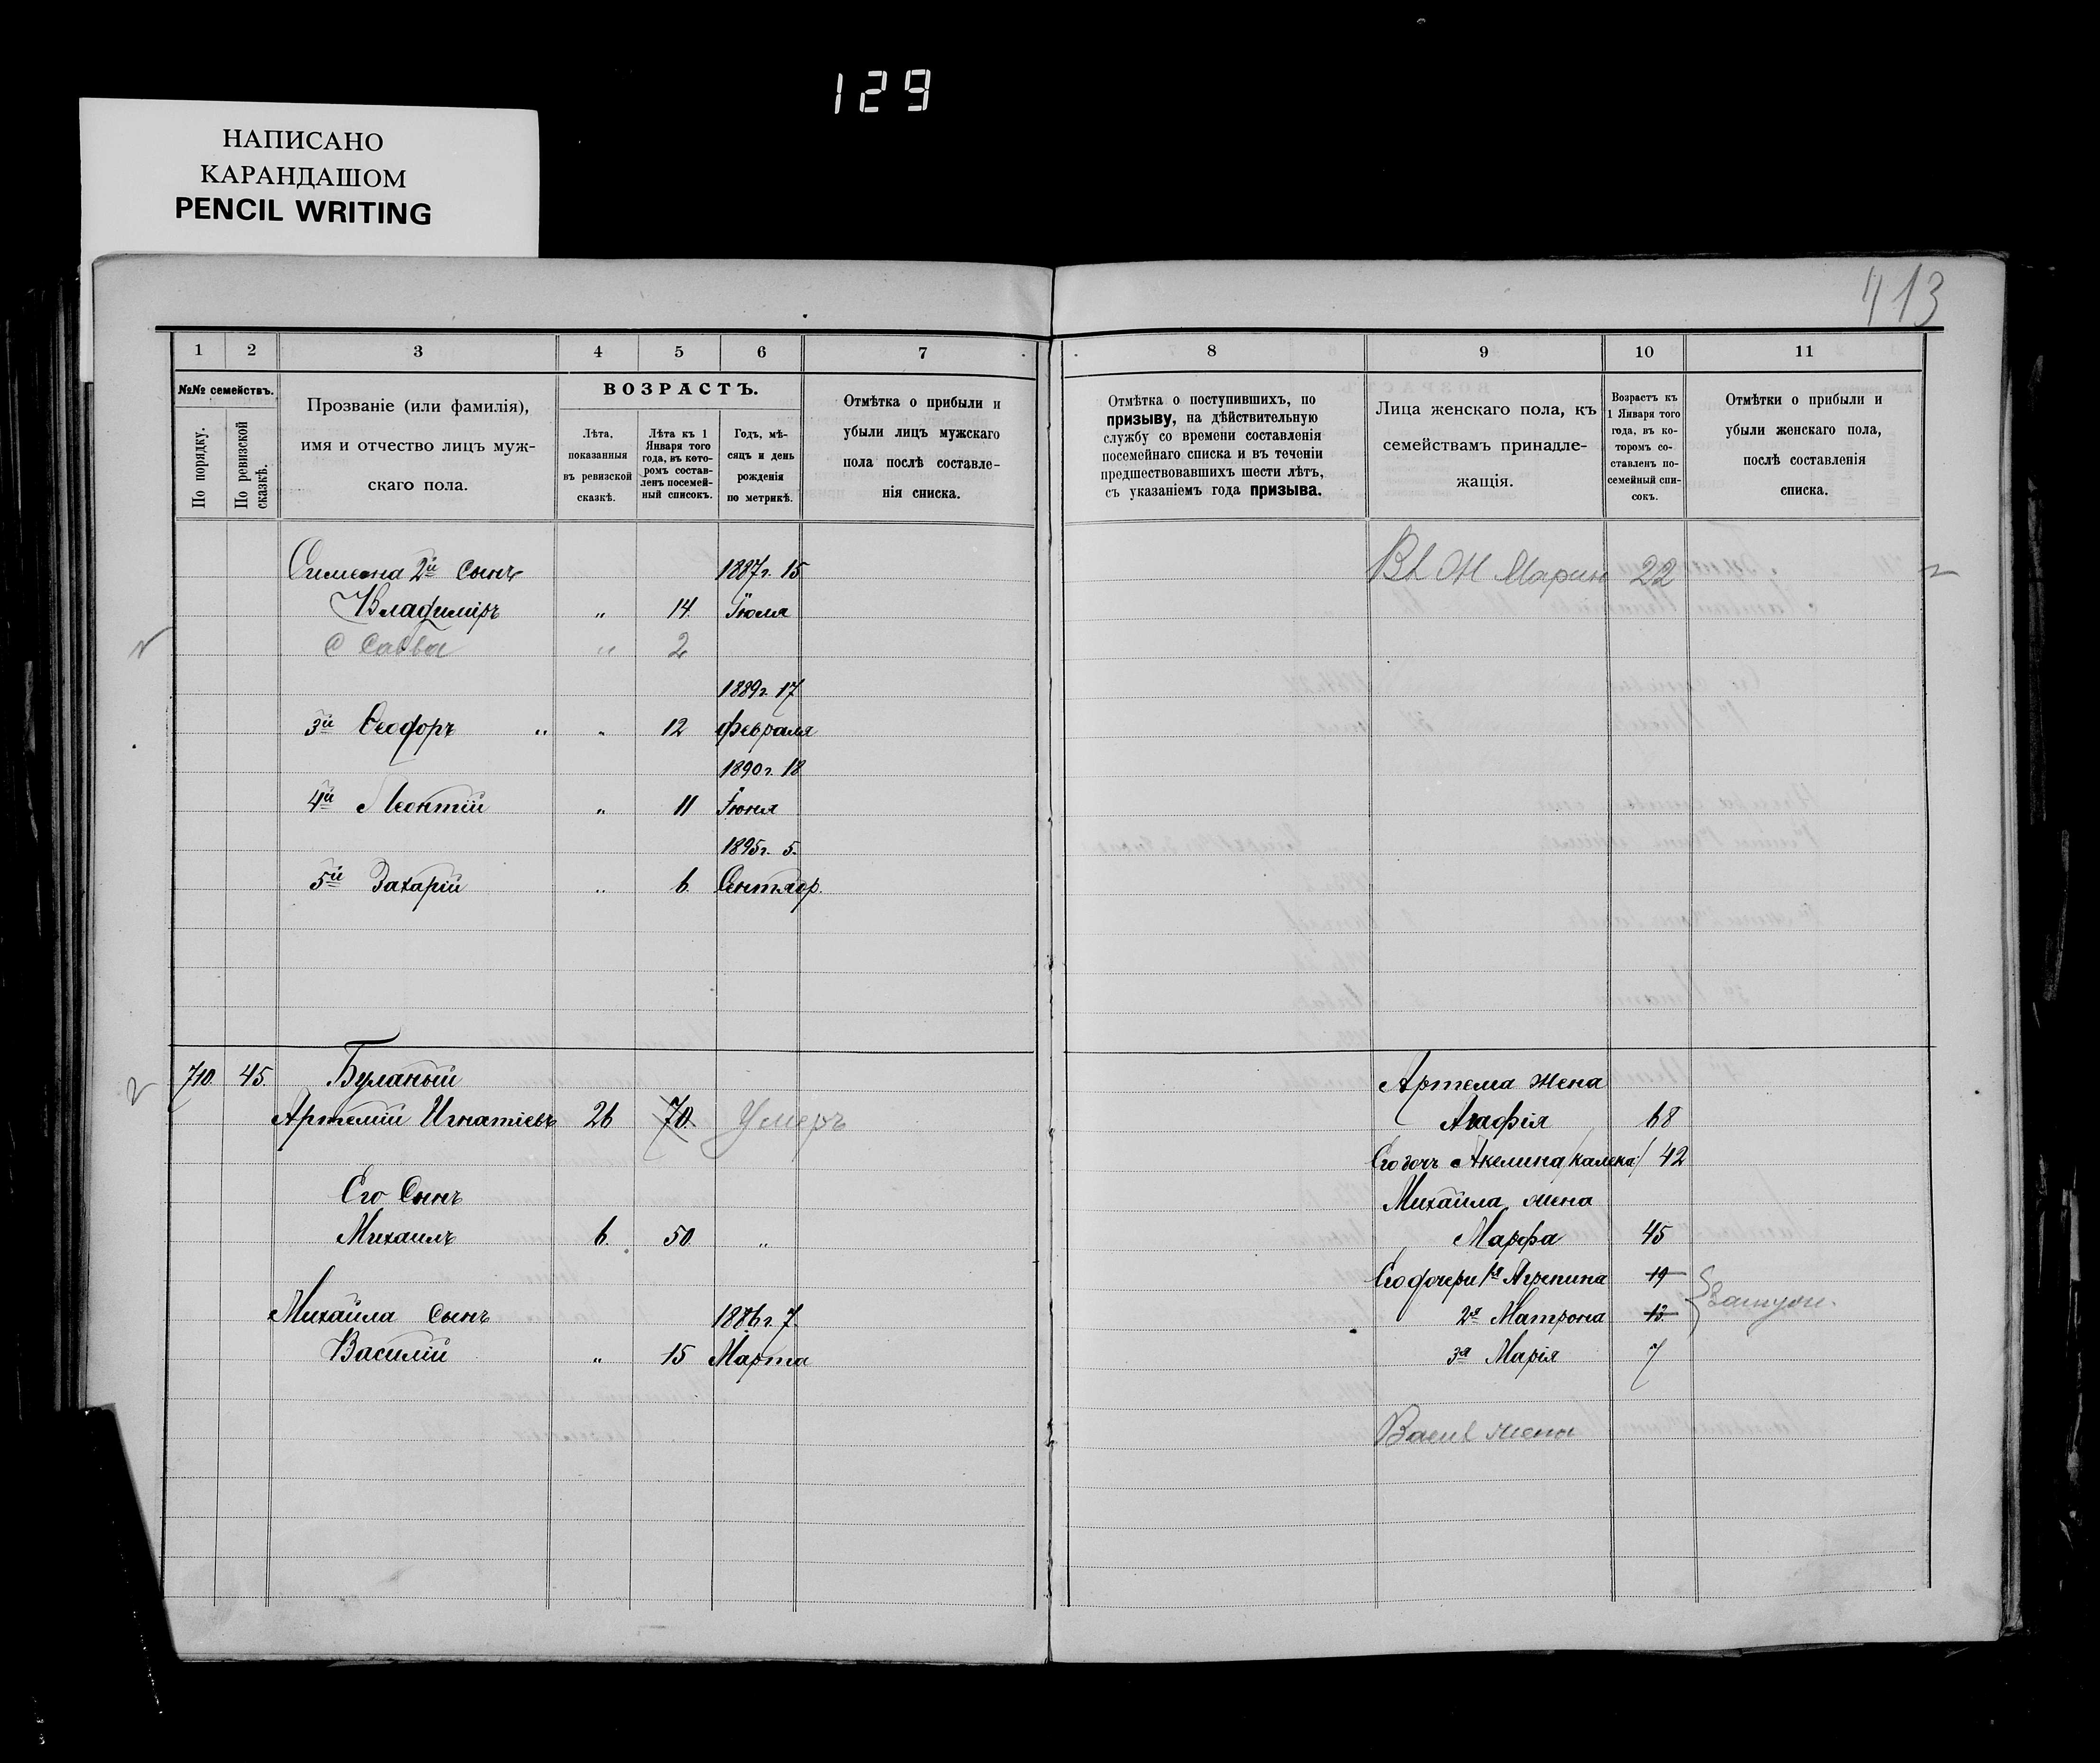 129
НАПИСАНО
КАРАНДАШОМ
PENCIL WRITING
413
1 2 3 4 5 6 7
№№ семействъ.
По порядку.
По ревизской сказкѣ.
Прозваніе (или фамилія),
имя и отчество лицъ муж-
скаго пола.
ВОЗРАСТЪ.
Лѣта,
показанныя
въ ревизской
сказкѣ.
Лѣта къ 1
Января того
года, въ кото-
ромъ состав-
ленъ посемей-
ный списокъ.
Годъ, мѣ-
сяцъ и день
рожденія
по метрикѣ.
Отмѣтка о прибыли и
убыли лицъ мужскаго
пола послѣ составле-
нія списка.
Симеона 2й сынъ 1887 г. 15
Владиміръ " 14. Іюля
С Савва " 2
1889 г. 17
3й Ѳеодоръ " " 12 февраля
1890 г. 18
4й Леонтій " 11 Іюня
1895 г. 5.
5й Захарій " 6. Сентябр.
710. 45. Буланый
Артемій Игнатіевъ 26 70. Умеръ
Его Сынъ
Михаилъ 6. 50. "
Михаила сынъ 1886 г. 7.
Василій " 15 Марта
8 9 10 11
Отмѣтка о поступившихъ, по
призыву, на дѣйствительную
службу со времени составленія
посемейнаго списка и въ теченіи
предшествовавшихъ шести лѣтъ,
съ указаніемъ года призыва.
Лица женскаго пола, къ
семействамъ принадле-
жащія.
Возрастъ къ
1 Января того
года, въ ко-
торомъ со-
ставленъ по-
семейный спи-
сокъ.
Отмѣтки о прибыли и
убыли женскаго пола,
послѣ составленія
списка.
Вл Ж Марин 22
Артема жена
Агафія 68
Его дочь Акелина /калека/ 42
Михаила жена
Марфа 45
Его дочери 1я Агрепина 19
2я Матрона 13. Замуж.
3я Марія 7
Васил жена